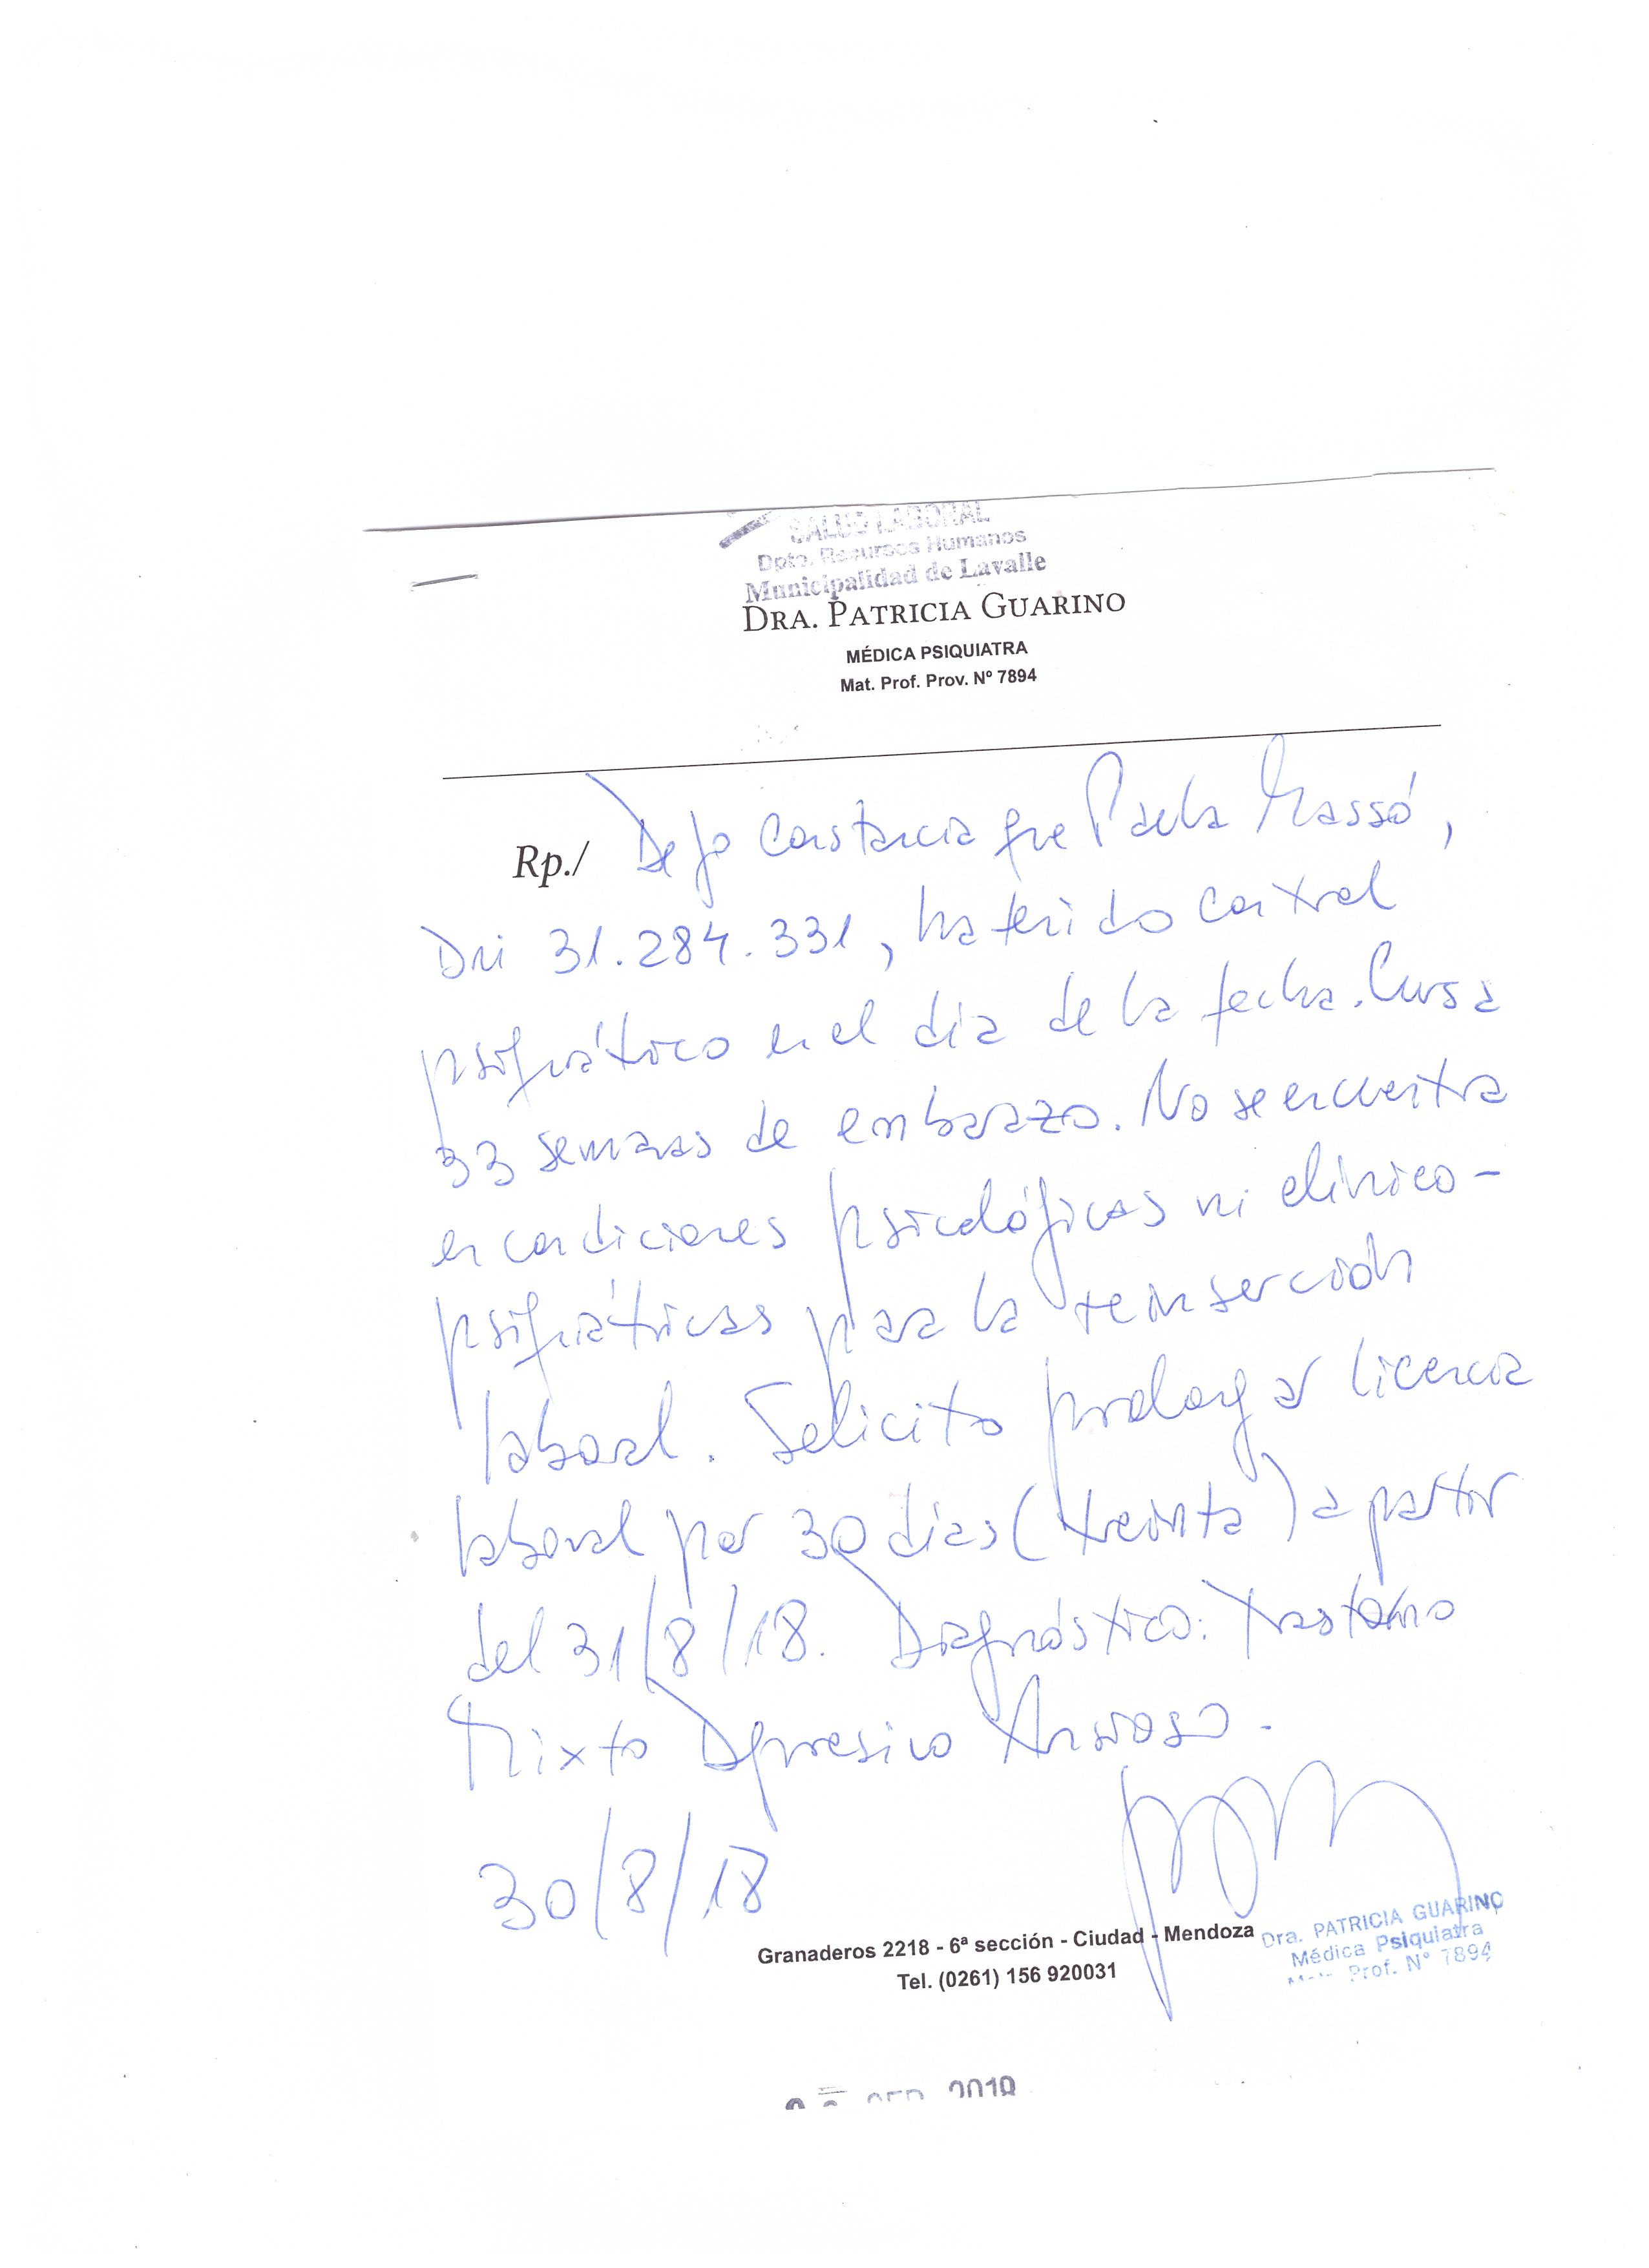 SALUD LABORAL
Dpto. Recursos Humanos
Municipalidad de Lavalle
DRA. PATRICIA GUARINO
MÉDICA PSIQUIATRA
Mat. Prof. Prov. Nº 7894
Rp./ Dejo constancia que Paula Massó,
DNI 31.284.331, ha tenido control
psiquiátrico en el día de la fecha. Cursa
33 semanas de embarazo. No se encuentra
en condiciones psicológicas ni clínico-
psiquiátricas para la reinserción
laboral. Solicito prolongar licencia
laboral por 30 días (treinta) a partir
del 31/8/18. Diagnóstico: Trastorno
Mixto Depresivo Ansioso.
30/8/18
Granaderos 2218 - 6ª sección - Ciudad - Mendoza
Tel. (0261) 156 920031
Dra. PATRICIA GUARINO
Médica Psiquiatra
Prof. N° 7894